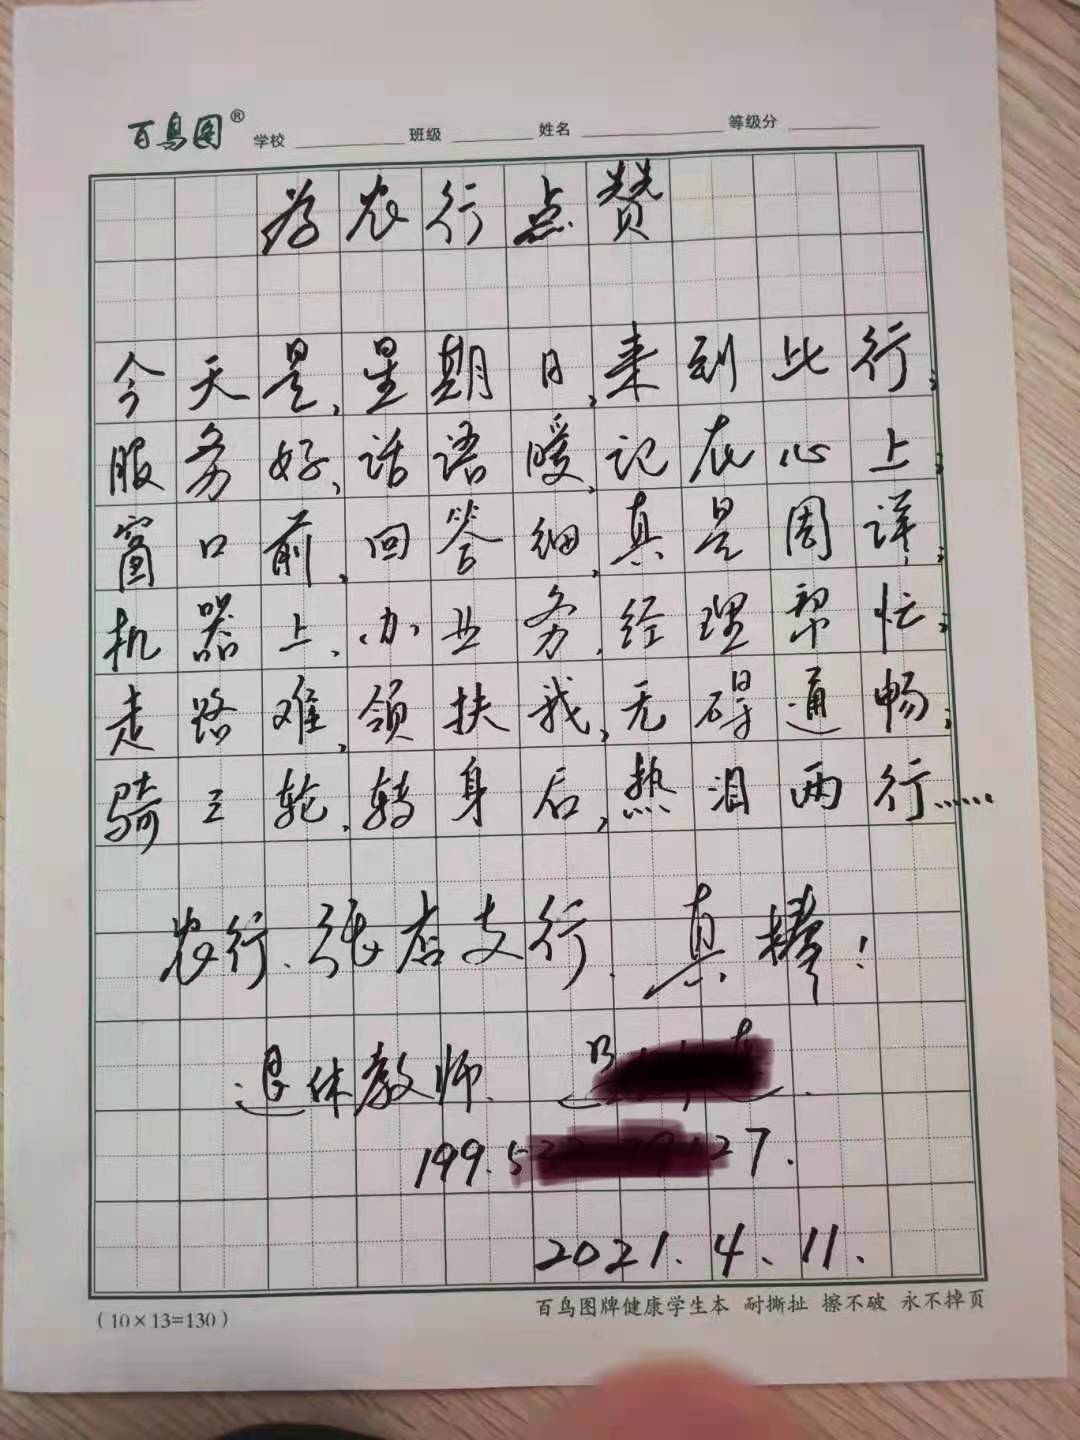 百鸟图® 学校 班级 姓名 等级分
为农行点赞
今天是,星期日,来到此行;
服务好,话语暖,记在心上;
窗口前,回答细,真是周详;
机器上、办业务,经理帮忙;
走路难,领扶我,无碍通畅;
骑三轮,转身后,热泪两行……
农行、张店支行、真棒!
退休教师
199.5 27.
2021.4.11.
百鸟图牌健康学生本 耐撕扯 擦不破 永不掉页
(10×13=130)